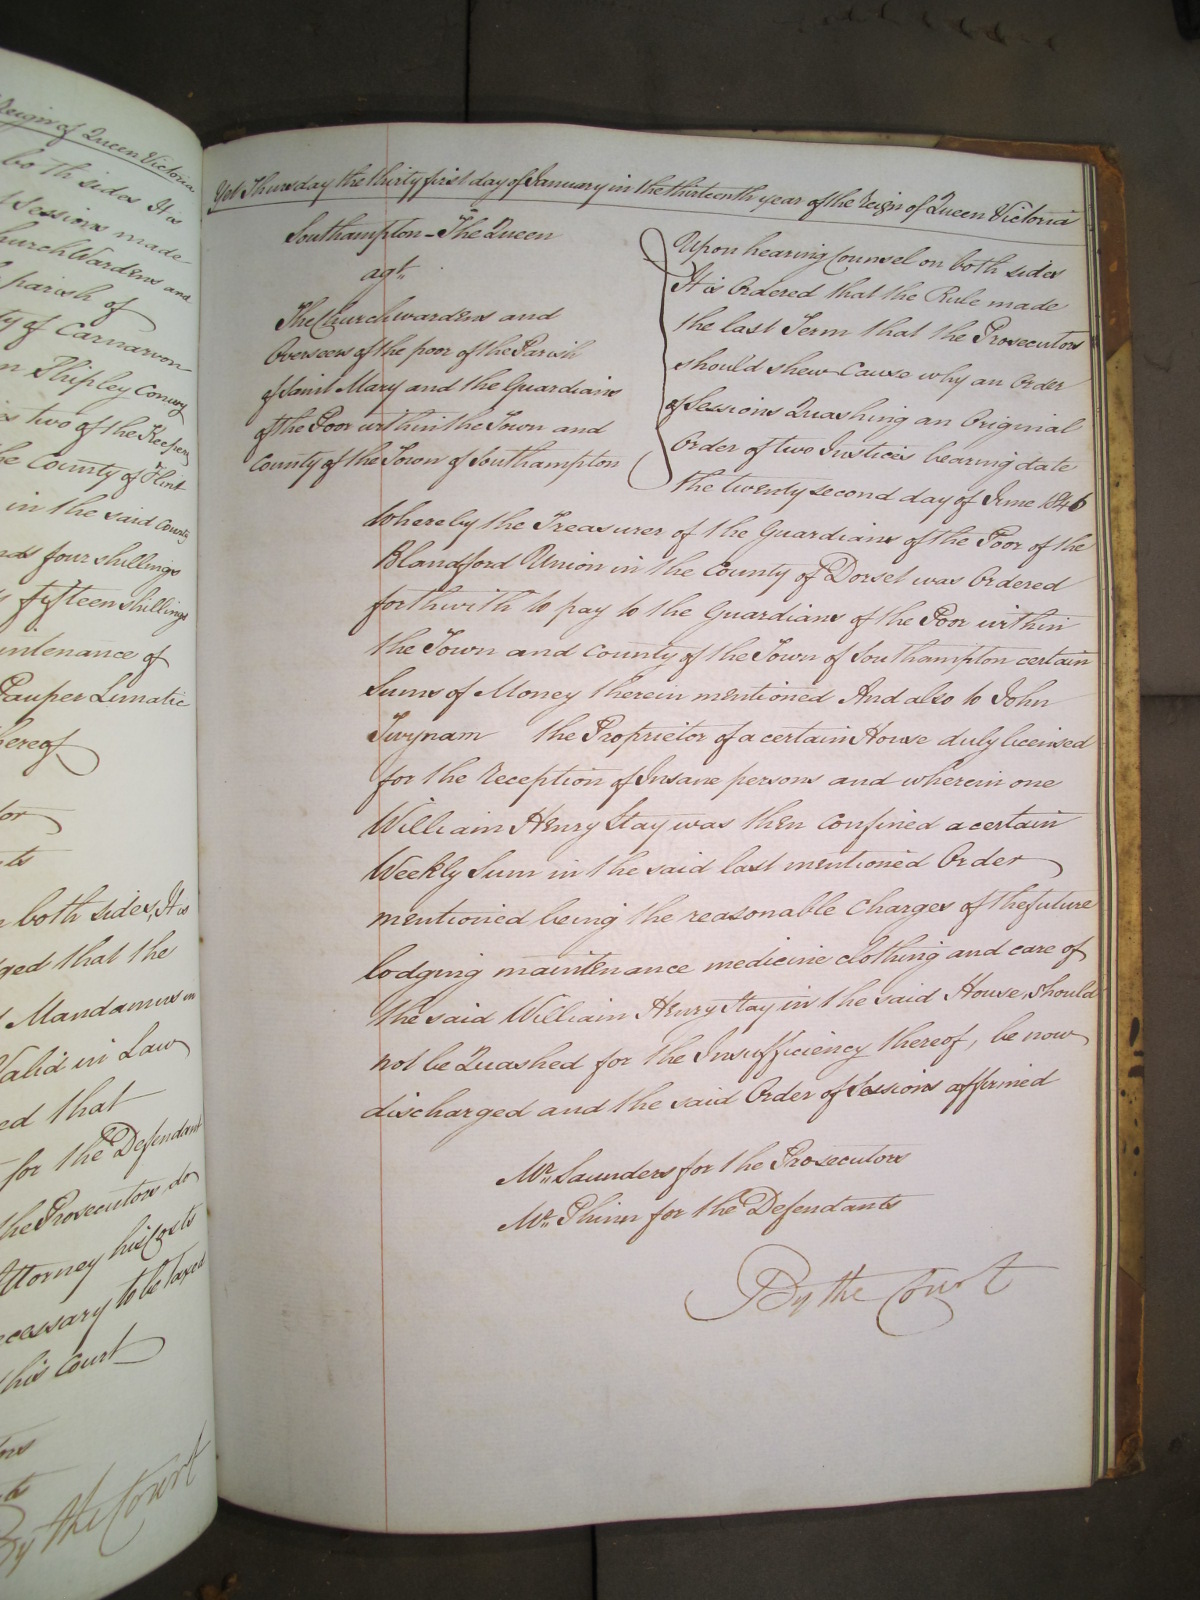 Reign of Queen Victoria
both sides It is
Sessions made
Churchwardens and
parish of
ty of Carnarvon
n Shipley Conwy
is two of the Keepers
he County of Flint
in the said County
nds four shillings
fifteen shillings
intenance of
Pauper Lunatic
hereof
or
ts
both sides, It is
dged that the
Mandamus in
Valid in Law
ed that
for the Defendant
the Prosecutors do
Attorney his Costs
ecessary to be taxed
this Court
ors
ts
By the Court
Yet Thursday the thirty first day of January in the thirteenth year of the Reign of Queen Victoria
Southampton - The Queen
agt.
The Churchwardens and
Overseers of the poor of the Parish
of Saint Mary and the Guardians
of the Poor within the Town and
County of the Town of Southampton
Upon hearing Counsel on both sides
It is Ordered that the Rule made
the last Term that the Prosecutors
should shew Cause why an Order
of Sessions Quashing an Original
Order of two Justices bearing date
the twenty second day of June 1846
Whereby the Treasurer of the Guardians of the Poor of the
Blandford Union in the County of Dorset was Ordered
forthwith to pay to the Guardians of the Poor within
the Town and County of the Town of Southampton certain
Sums of Money therein mentioned And also to John
Twynam the Proprietor of a certain House duly licensed
for the reception of Insane persons and wherein one
William Henry Stay was then confined a certain
Weekly Sum in the said last mentioned Order
mentioned being the reasonable Charges of the future
lodging maintenance medicine clothing and care of
the said William Henry Stay in the said House, should
not be Quashed for the Insufficiency thereof, be now
discharged and the said Order of Sessions affirmed
Mr. Saunders for the Prosecutors
Mr. Phinn for the Defendants
By the Court